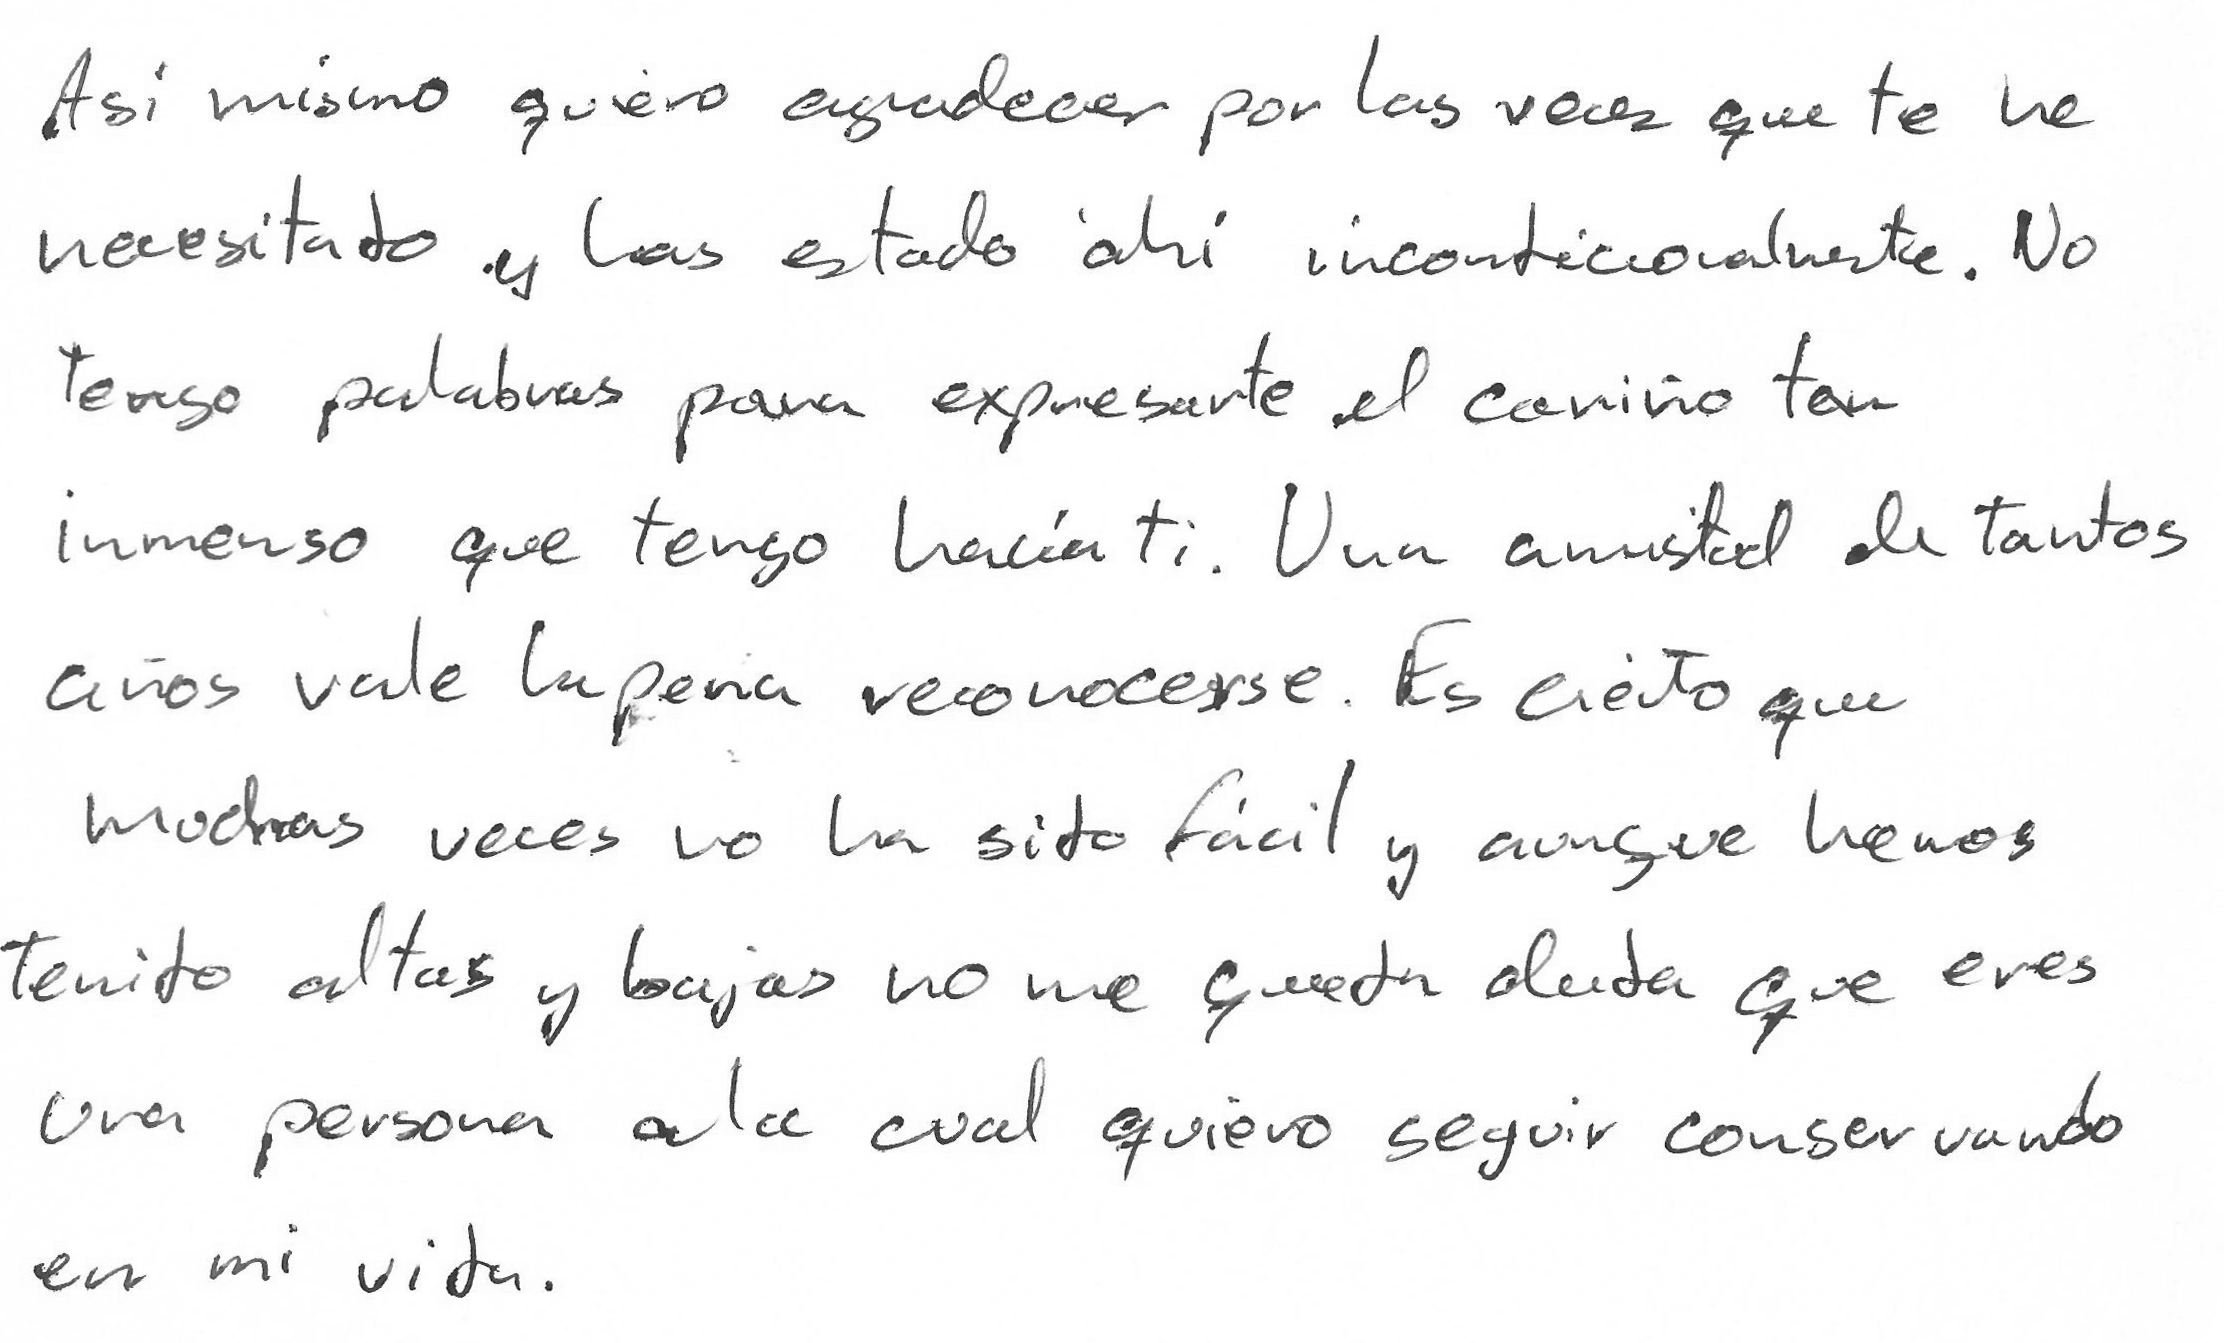 Así mismo quiero agradecer por las veces que te he
necesitado y has estado ahí incondicionalmente. No
tengo palabras para expresarte el cariño tan
inmenso que tengo hacía ti. Una amistad de tantos
años vale la pena reconocerse. Es cierto que
muchas veces no ha sido fácil y aunque hemos
tenido altas y bajas no me queda duda que eres
una persona a la cual quiero seguir conservando
en mi vida.